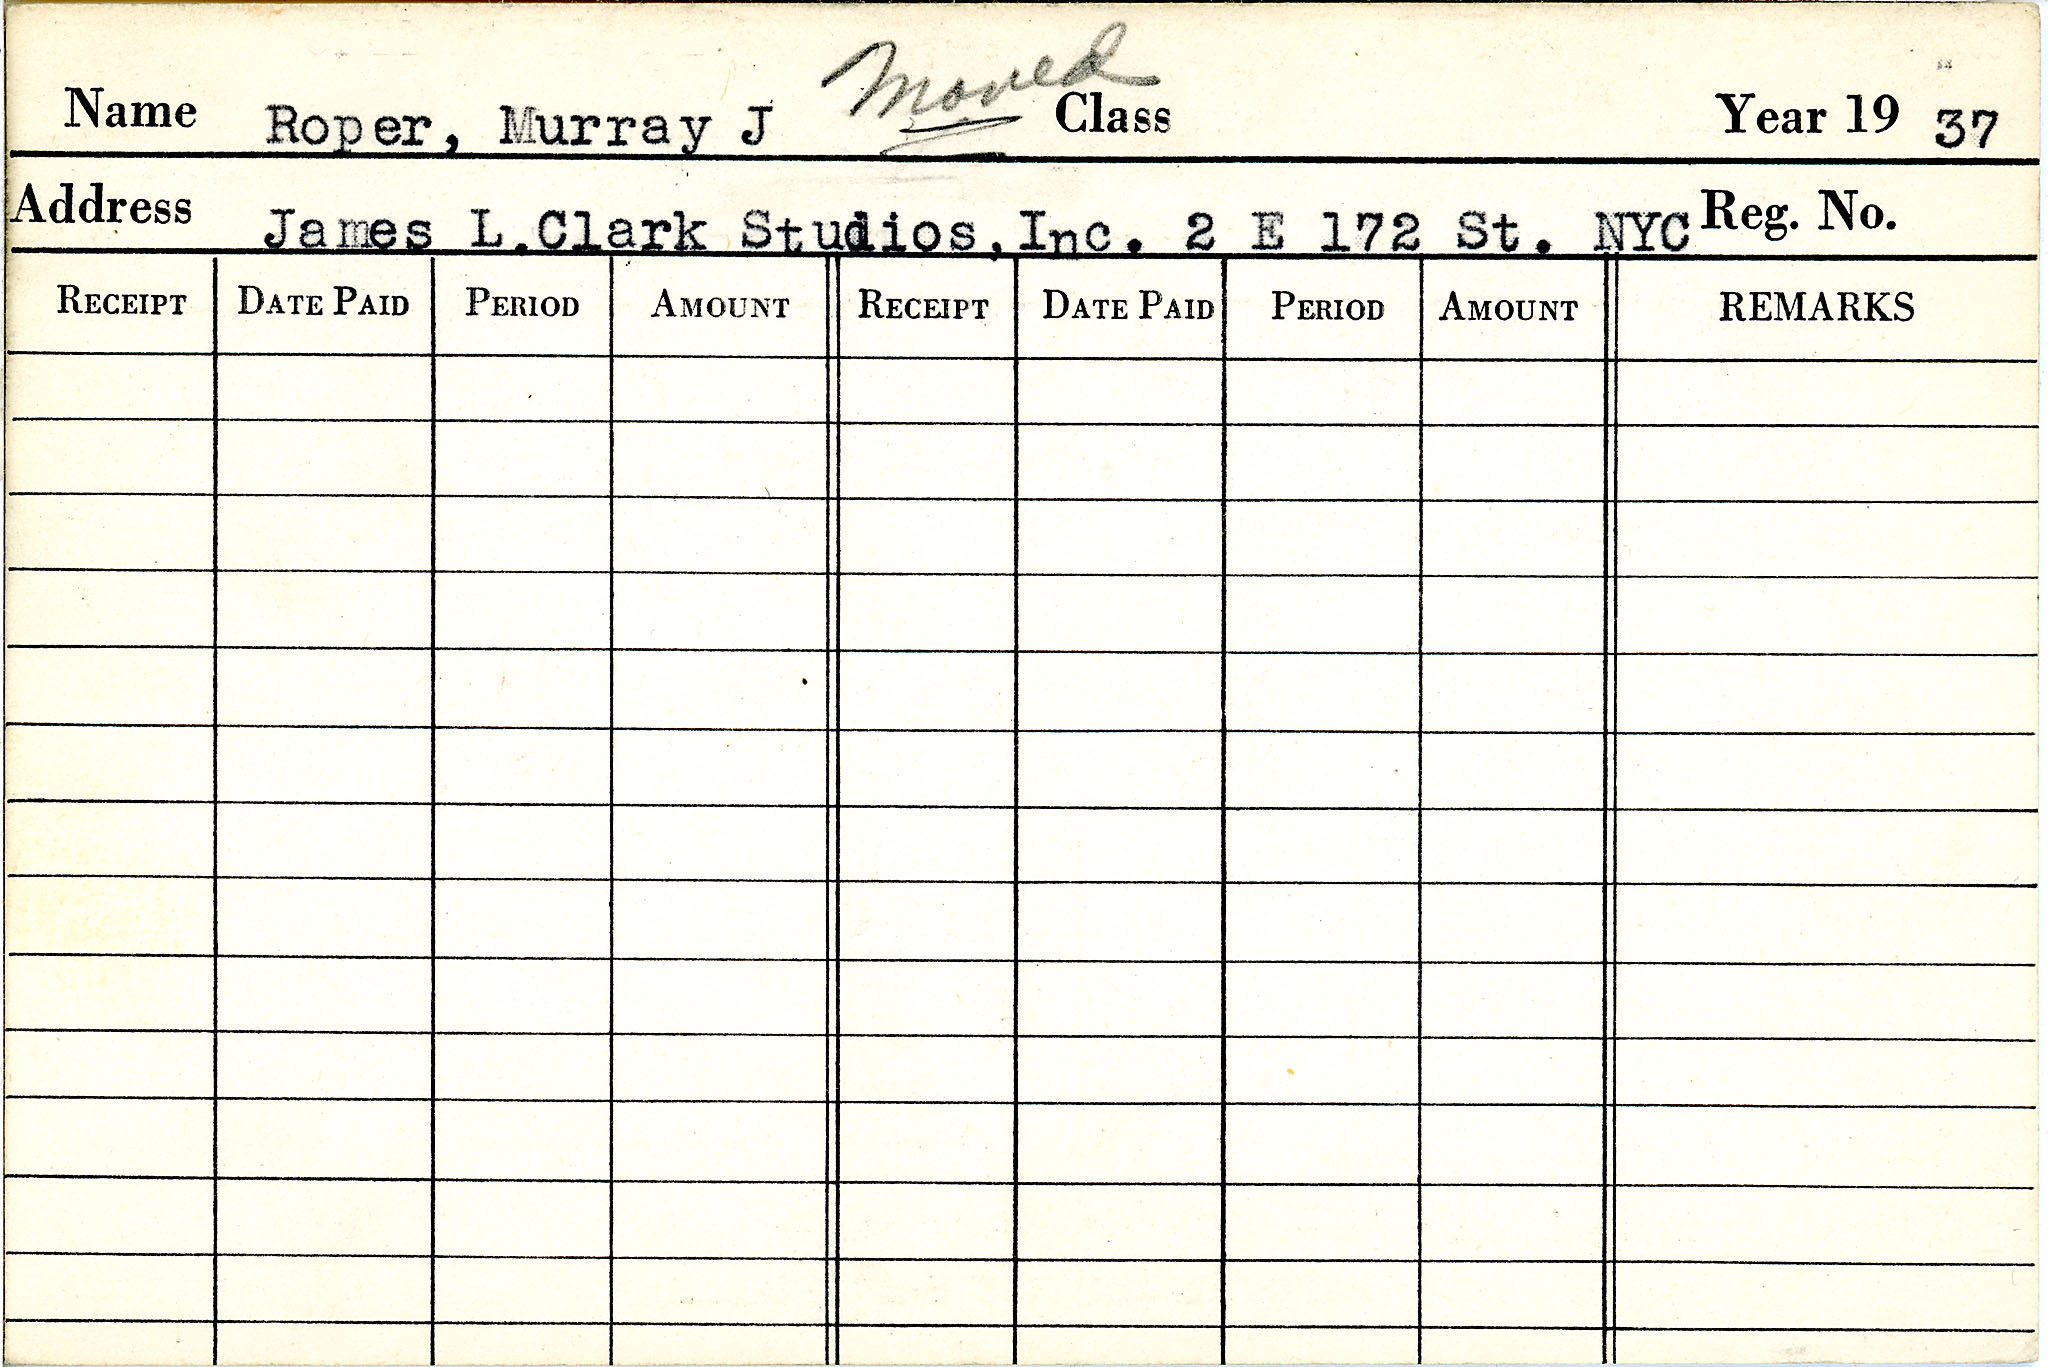 Name Roper, Murray J Moved Class Year 19 37
Address James L.Clark Studios,Inc. 2 E 172 St. NYC Reg. No.
RECEIPT DATE PAID PERIOD AMOUNT RECEIPT DATE PAID PERIOD AMOUNT REMARKS